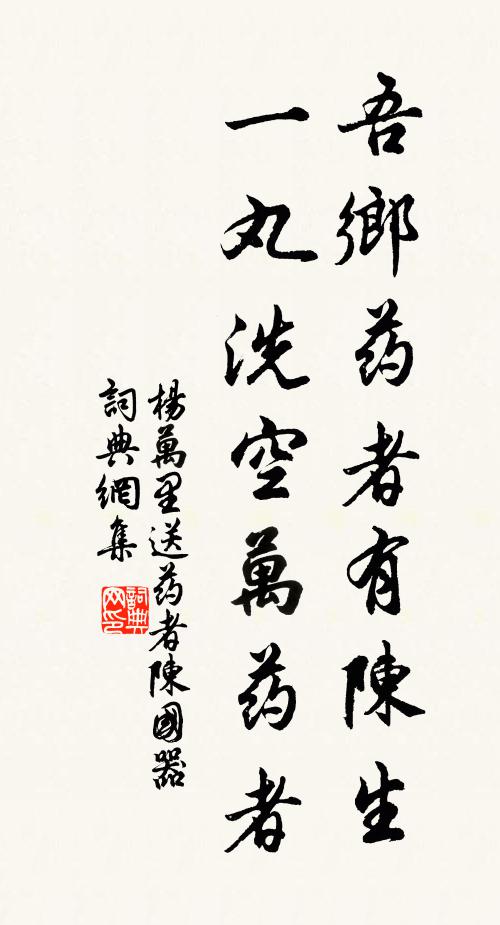 吾鄉药者有陳生
一丸洗空萬药者
楊萬里送药者陳國器
詞典網集
詞典网印